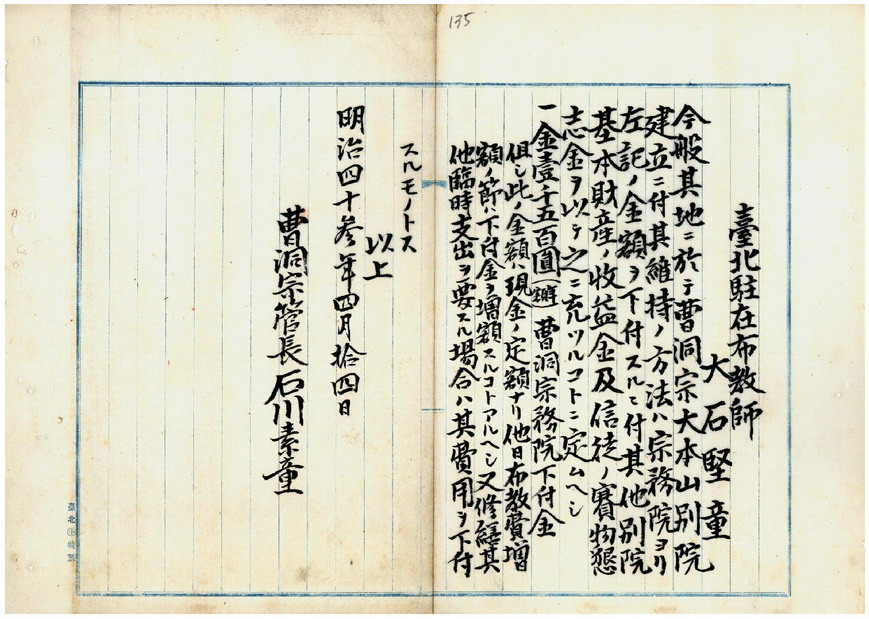 135
臺北駐在布教師
大石堅童
今般其地ニ於テ曹洞宗大本山別院
建立ニ付其維持ノ方法ハ宗務院ヨリ
左記ノ金額ヲ下付スルニ付其他別院
基本財産ノ收益金及信徒ノ賽物懇
志金ヲ以テ之ニ充ツルコトニ定ムヘシ
一金壹千五百圓 曹洞宗務院下付金
但シ此ノ金額ハ現金ノ定額ナリ他日布教費増
額ノ節ハ下付金ヲ増額スルコトアルヘシ又修繕其
他臨時支出ヲ要スル場合ハ其費用ヲ下付
スルモノトス
以上
明治四十参年四月拾四日
曹洞宗管長石川素童
臺北